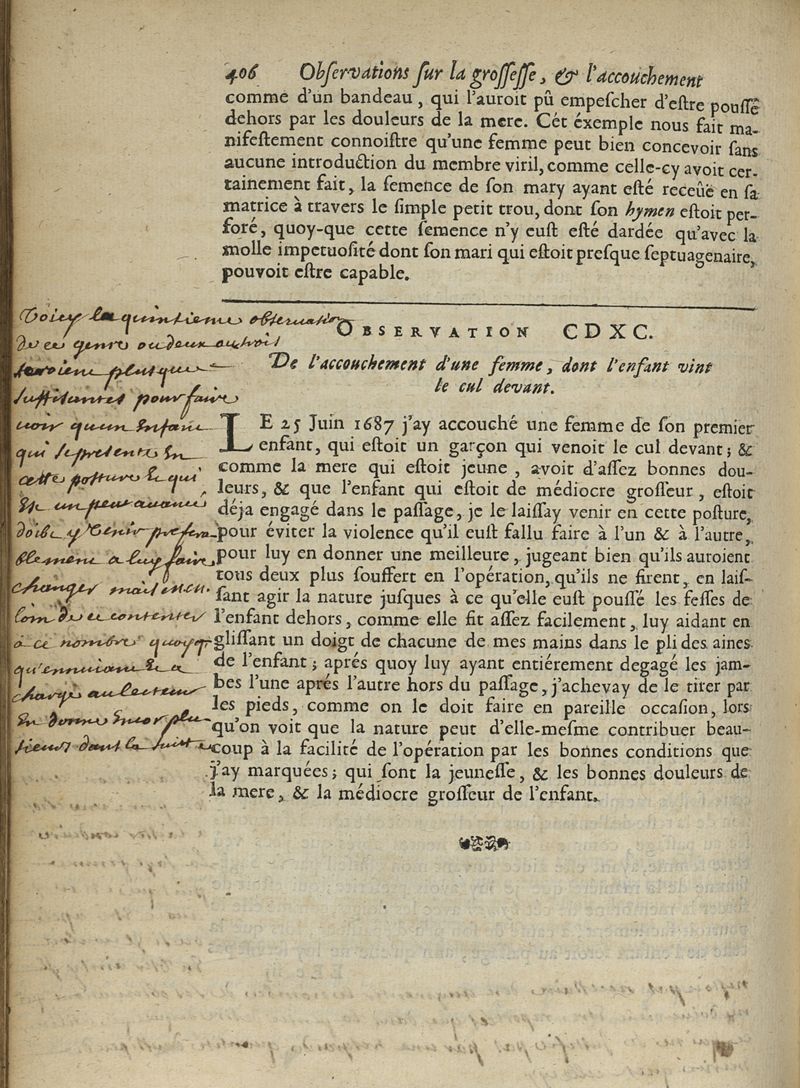 406 Obſervations ſur la groſſeſſe, & l'accouchement
comme d'un bandeau, qui l'auroit pû empeſcher d'eſtre pouſſé
dehors par les douleurs de la mere. Cét éxemple nous fait ma-
nifeſtement connoiſtre qu'une femme peut bien concevoir ſans
aucune introduction du membre viril, comme celle-cy avoit cer-
tainement fait, la ſemence de ſon mary ayant eſté receûë en ſa
matrice à travers le ſimple petit trou, dont ſon hymen eſtoit per-
foré, quoy-que cette ſemence n'y euſt eſté dardée qu'avec la
molle impetuoſité dont ſon mari qui eſtoit preſque ſeptuagenaire,
pouvoit eſtre capable.
OBSERVATION CDXC.
De l'accouchement d'une femme, dont l'enfant vint
le cul devant.
LE 25 Juin 1687 j'ay accouché une femme de ſon premier
enfant, qui eſtoit un garçon qui venoit le cul devant; &
comme la mere qui eſtoit jeune, avoit d'aſſez bonnes dou-
leurs, & que l'enfant qui eſtoit de médiocre groſſeur, eſtoit
déja engagé dans le paſſage, je le laiſſay venir en cette poſture,
pour éviter la violence qu'il euſt fallu faire à l'un & à l'autre,
pour luy en donner une meilleure, jugeant bien qu'ils auroient
tous deux plus ſouffert en l'opération, qu'ils ne firent, en laiſ-
ſant agir la nature juſques à ce qu'elle euſt pouſſé les feſſes de
l'enfant dehors, comme elle fit aſſez facilement, luy aidant en
gliſſant un doigt de chacune de mes mains dans le pli des aines
de l'enfant; aprés quoy luy ayant entiérement degagé les jam-
bes l'une aprés l'autre hors du paſſage, j'achevay de le tirer par
les pieds, comme on le doit faire en pareille occaſion, lors
qu'on voit que la nature peut d'elle-meſme contribuer beau-
coup à la facilité de l'opération par les bonnes conditions que
j'ay marquées; qui ſont la jeuneſſe, & les bonnes douleurs de
la mere, & la médiocre groſſeur de l'enfant.
Voicy la quintieme observation
de ce genre ou deux ou trois
seroient plus que
suffisantes pour faire
voir quun enfant
qui se presente en
cette posture & qui
est un peu avancé
doibt y venir prefera-
blement a luy faire
changer mais
loin de se contenter
a ce nombre quoyqu
charge au lecteur
en donne encor plu-
sieurs dans la suite